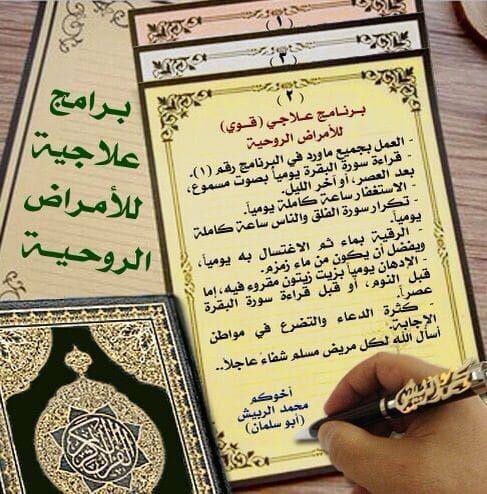 برامج
علاجية
للأمراض
الروحية
(١)
(٣)
(٢)
برنامج علاجي (قوي)
للأمراض الروحية
- العمل بجميع ماورد في البرنامج رقم (١).
- قراءة سورة البقرة يومياً بصوت مسموع،
بعد العصر، أو آخر الليل.
- الاستغفار ساعة كاملة يومياً.
- تكرار سورة الفلق والناس ساعة كاملة
يومياً.
- الرقية بماء ثم الاغتسال به يومياً،
ويفضل أن يكون من ماء زمزم.
- الإدهان يومياً بزيت زيتون مقروء فيه، إما
قبل النوم، أو قبل قراءة سورة البقرة
عصراً.
- كثرة الدعاء والتضرع في مواطن
الإجابة.
أسأل الله لكل مريض مسلم شفاءً عاجلاً..
أخوكم
محمد الربيش
(أبو سلمان)
القرآن الكريم